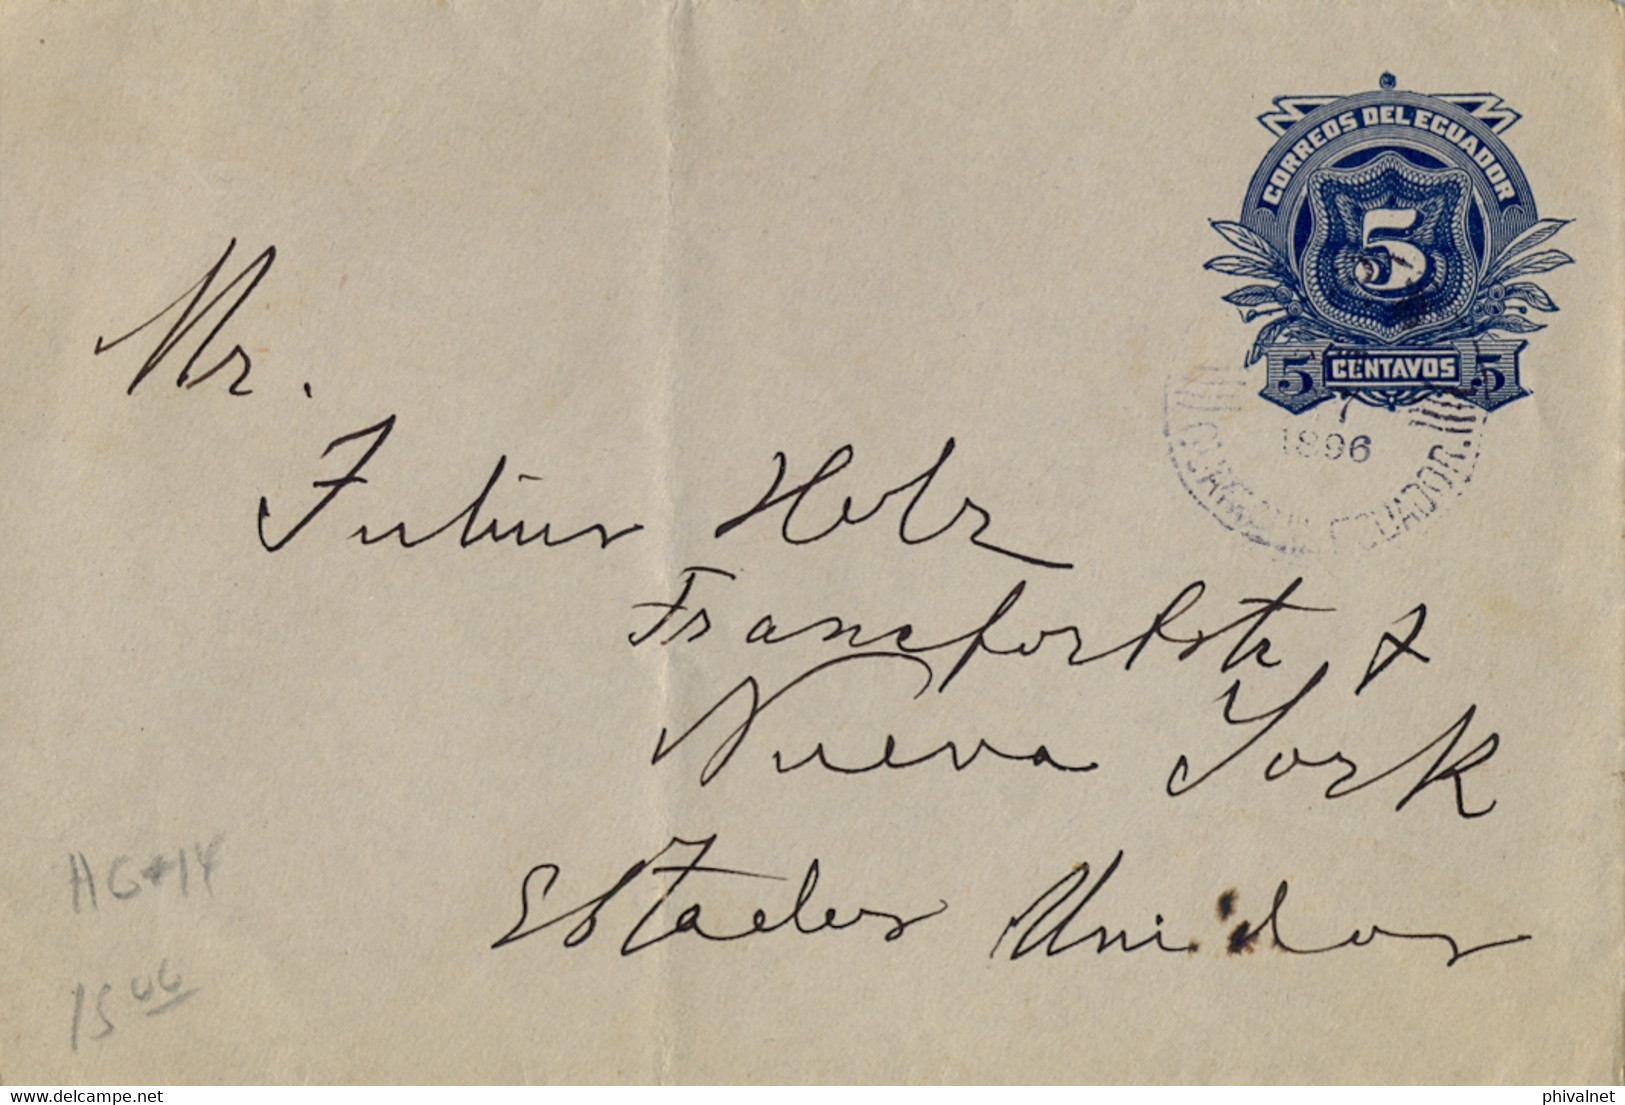 CORREOS DEL ECUADOR
5
5 CENTAVOS 5
7
1896
ECUADOR.
Mr.
Julius Holz
Francfortstr
Nueva York
Estados Unidos
HG 14
15 00
delcampe.com
phivalnet